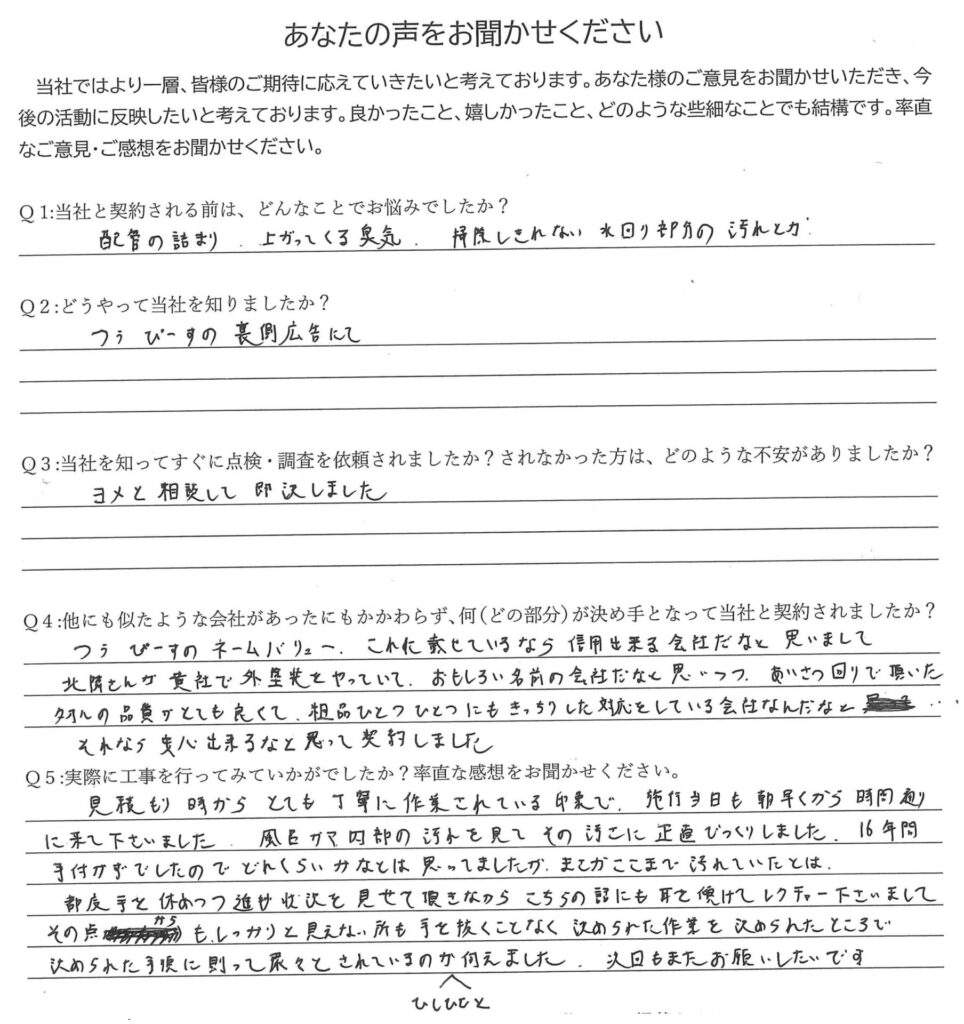 あなたの声をお聞かせください
当社ではより一層、皆様のご期待に応えていきたいと考えております。あなた様のご意見をお聞かせいただき、今
後の活動に反映したいと考えております。良かったこと、嬉しかったこと、どのような些細なことでも結構です。率直
なご意見・ご感想をお聞かせください。
Q1:当社と契約される前は、どんなことでお悩みでしたか？
配管の詰まり、上がってくる臭気、掃除しきれない水回り部分の汚れとカビ
Q2:どうやって当社を知りましたか？
つぅぴーすの裏側広告にて
Q3:当社を知ってすぐに点検・調査を依頼されましたか？されなかった方は、どのような不安がありましたか？
ヨメと相談して即決しました
Q4:他にも似たような会社があったにもかかわらず、何（どの部分）が決め手となって当社と契約されましたか？
つぅぴーすのネームバリュー、これに載せているなら信用出来る会社だなと思いまして
北隣さんが貴社で外塗装をやっていて、おもしろい名前の会社だなと思いつつ、あいさつ回りで頂いた
タオルの品質がとても良くて、粗品ひとつひとつにもきっちりした対応をしている会社なんだなと…
それなら安心出来るなと思って契約しました
Q5:実際に工事を行ってみていかがでしたか？率直な感想をお聞かせください。
見積もり時からとても丁寧に作業されている印象で、施行当日も朝早くから時間通り
に来て下さいました。風呂ガマ内部の汚れを見てその汚さに正直びっくりしました。16年間
手付かずでしたのでどれくらいかなとは思ってましたが、まさかここまで汚れていたとは。
都度手を休めつつ進捗状況を見せて頂きながらこちらの話にも耳を傾けてレクチャー下さいまして
その点からも、しっかりと見えない所も手を抜くことなく決められた作業を決められたところで
決められた手順に則って粛々とされているのがひしひしと伺えました。次回もまたお願いしたいです